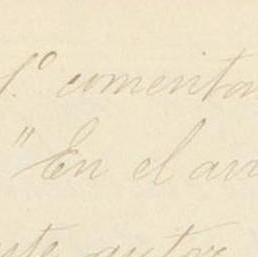 1.º comenta
"En el an
este autor